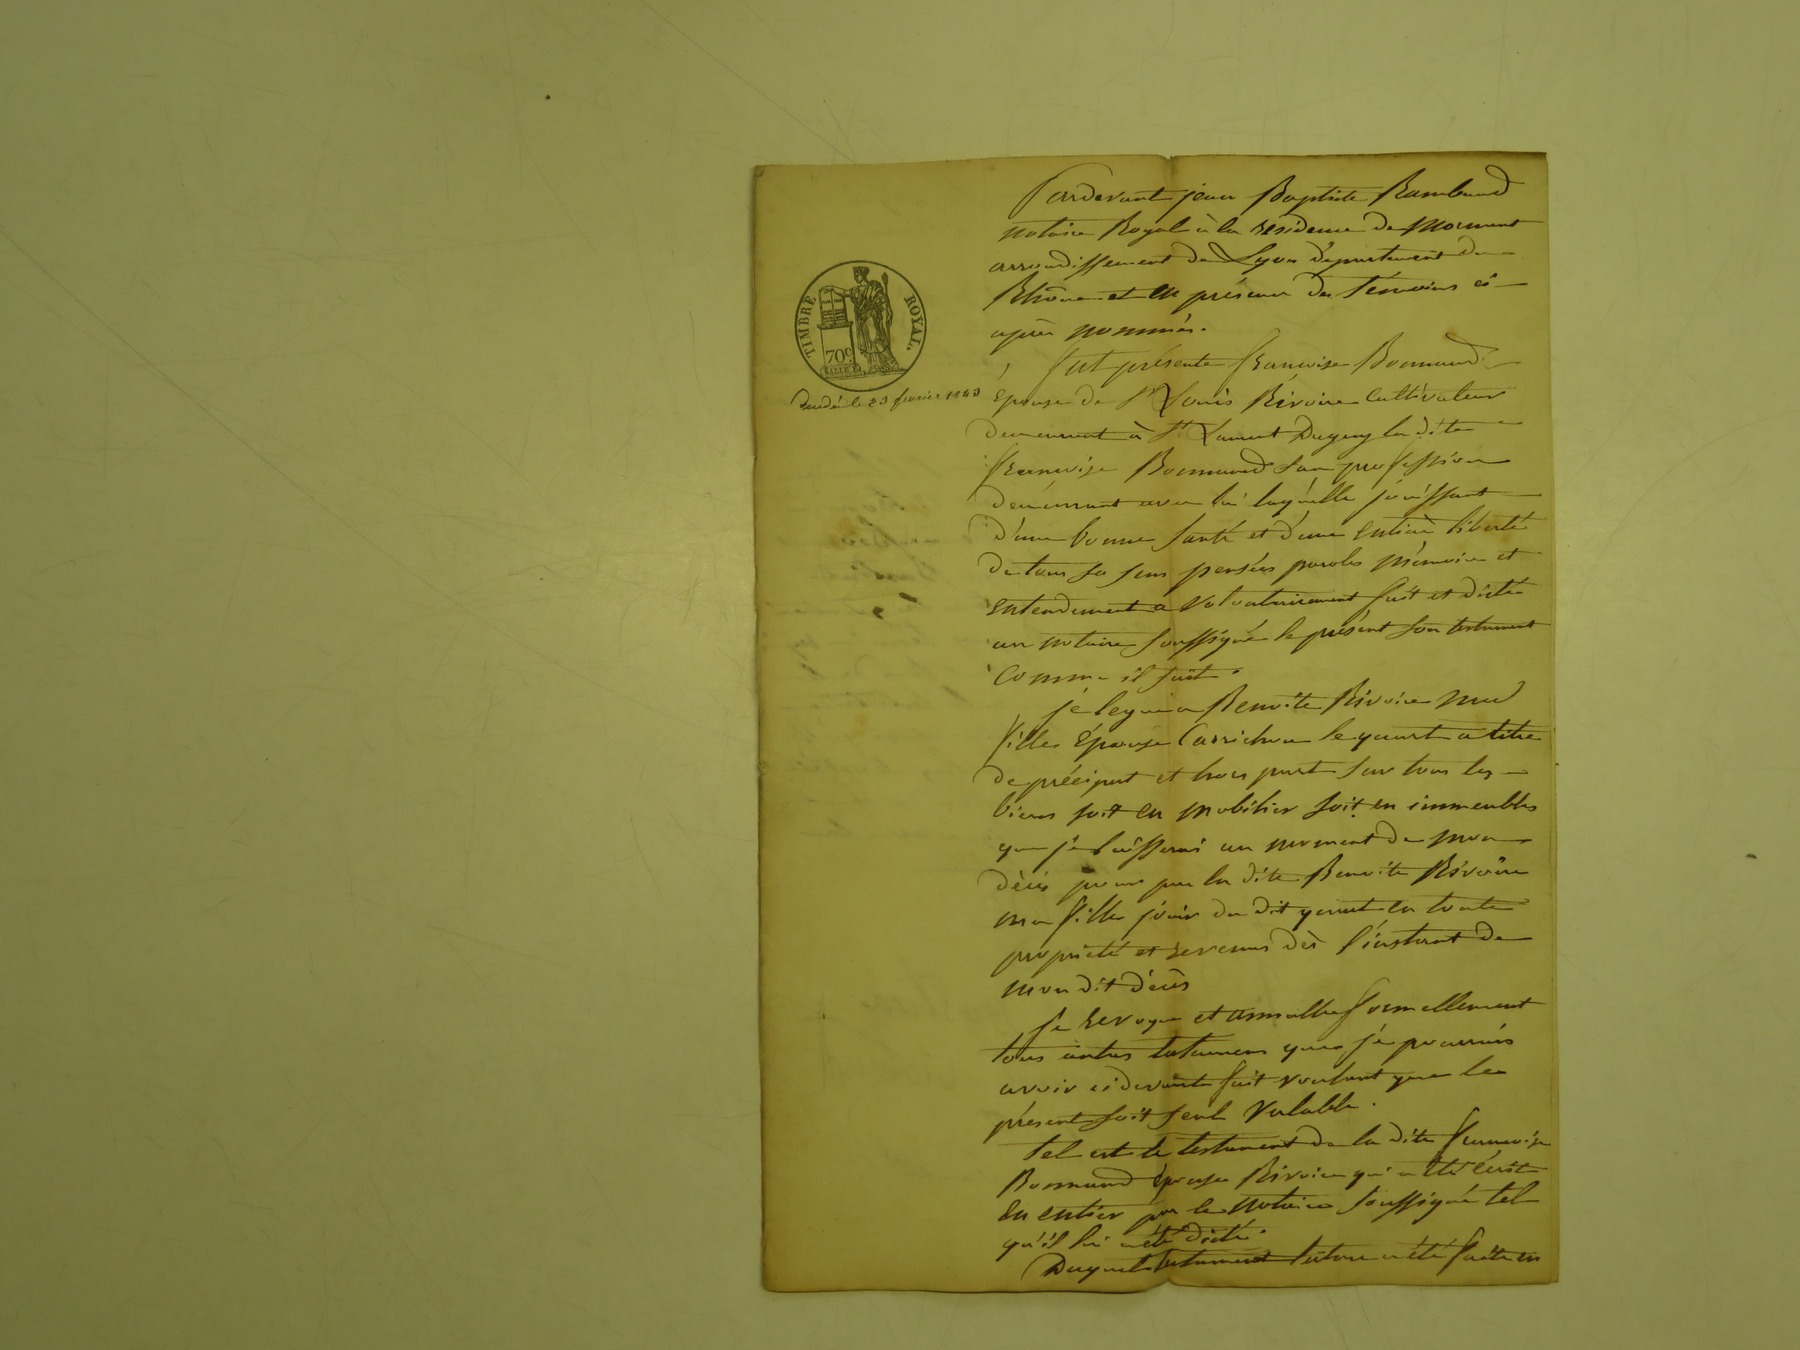 Pardevant jean Baptiste Rambaud
notaire Royal à la résidence de Mornant
arrondissement de Lyon département du
Rhône et en présence des témoins ci
après nommés.
TIMBRE ROYAL
70c.
fut présente françoise Bonnand
Décédée le 23 fevrier 1843
épouse de Sr Louis Rivoire Cultivateur
demeurant à St Laurent Dagny la dite
françoise Bonnand san profession
demeurant avec lui laquelle jouissant
d'une bonne santé et d'une entière liberté
de tous ses sens pensées paroles mémoire et
entendement a volontairement fait et dicté
au notaire soussigné le présent son testament
comme il suit.
je legue a Benoite Rivoire ma
fille épouse le quart a titre
de préciput et hors part sur tous les
biens soit en mobilier soit en immeubles
que je laisserai au moment de mon
décès pour par la dite Benoite Rivoire
ma fille jouir du dit quart en toute
propriété et revenus dès l'instant de
mon dit décès
je revoque et annulle formellement
tous autres testamens que je pourrais
avoir ci devant fait voulant que le
présent soit seul valable.
tel est le testament de la dite françoise
Bonnand épouse Rivoire qui a été écrit
en entier par le notaire soussigné tel
qu'il lui a été dicté.
Duquel testament lecture a été faite en